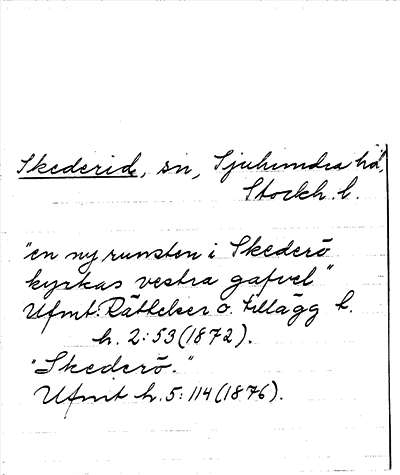 Skederid, sn, Sjuhundra hd,
Stockh. l.
"en ny runsten i Skederö
kyrkas vestra gafvel"
Ufmt: Rättelser o. tillägg t.
h. 2:53 (1872).
"Skederö."
Ufmt h. 5:114 (1876).